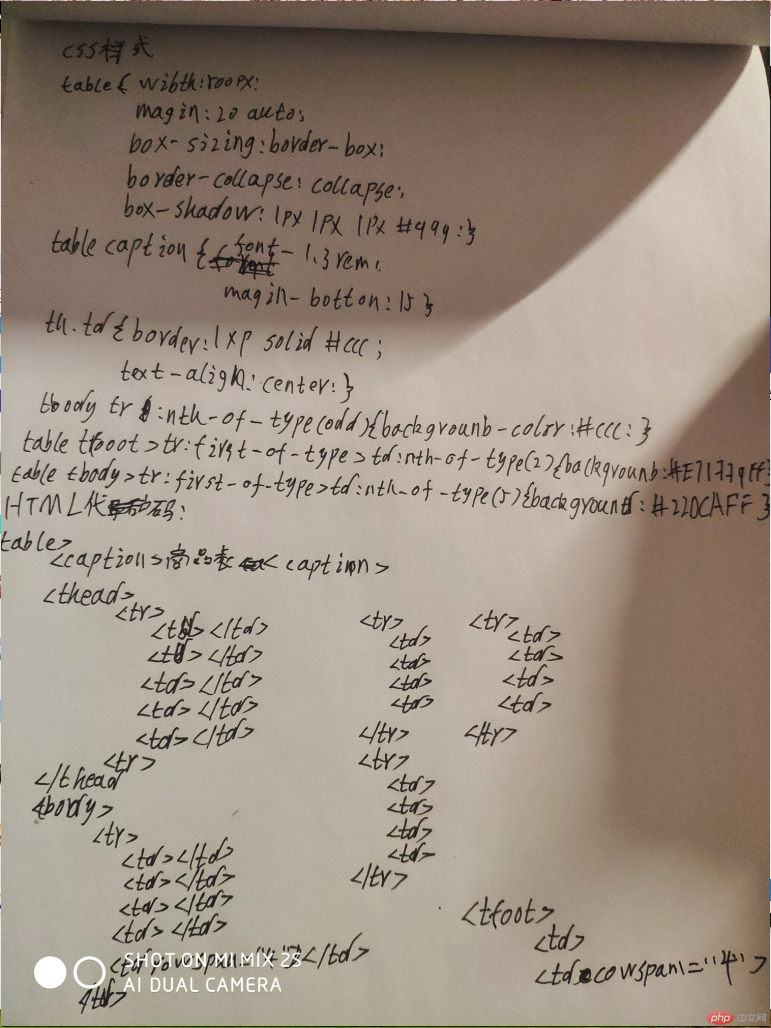 CSS样式
table{ wibth:800px:
magin:20 auto;
box-sizing:border-box;
border-collapse: collapse;
box-shadow: 1px 1px 1px #999:}
table caption { font- 1.3rem;
magin-botton:15}
th.td{border:1xp solid #ccc;
text-align:center:}
tbody tr :nth-of-type(odd){backgrounb-color:#ccc:}
table tfoot>tr:first-of-type>td:nth-of-type(2){backgrounb:#E7177qFF}
table tbody>tr:first-of-type>td:nth-of-type(5){background:#220CAFF}
HTML代码:
table>
<caption>商品表< caption>
<thead>
<tr>
<td></td>
<td></td>
<td></td>
<td></td>
<td></td>
<tr>
</thead
<body>
<tr>
<td></td>
<td></td>
<td></td>
<td></td>
<td rowspan="4"></td>
</tr>
<tr>
<td>
<td>
<td>
<td>
</tr>
<tr>
<td>
<td>
<td>
<td>
</tr>
<tr>
<td>
<td>
<td>
<td>
</tr>
<tfoot>
<td>
<td cowspan="4">
SHOT ON MI MIX 2S
AI DUAL CAMERA
php 中文网